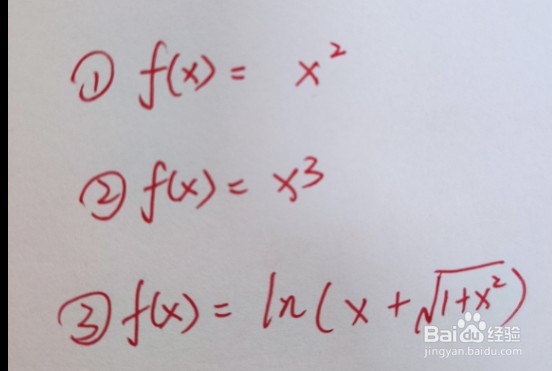 ① f(x) = x²
② f(x) = x³
③ f(x) = ln(x + √(1+x²))
Baidu经验
jingyan.baidu.com